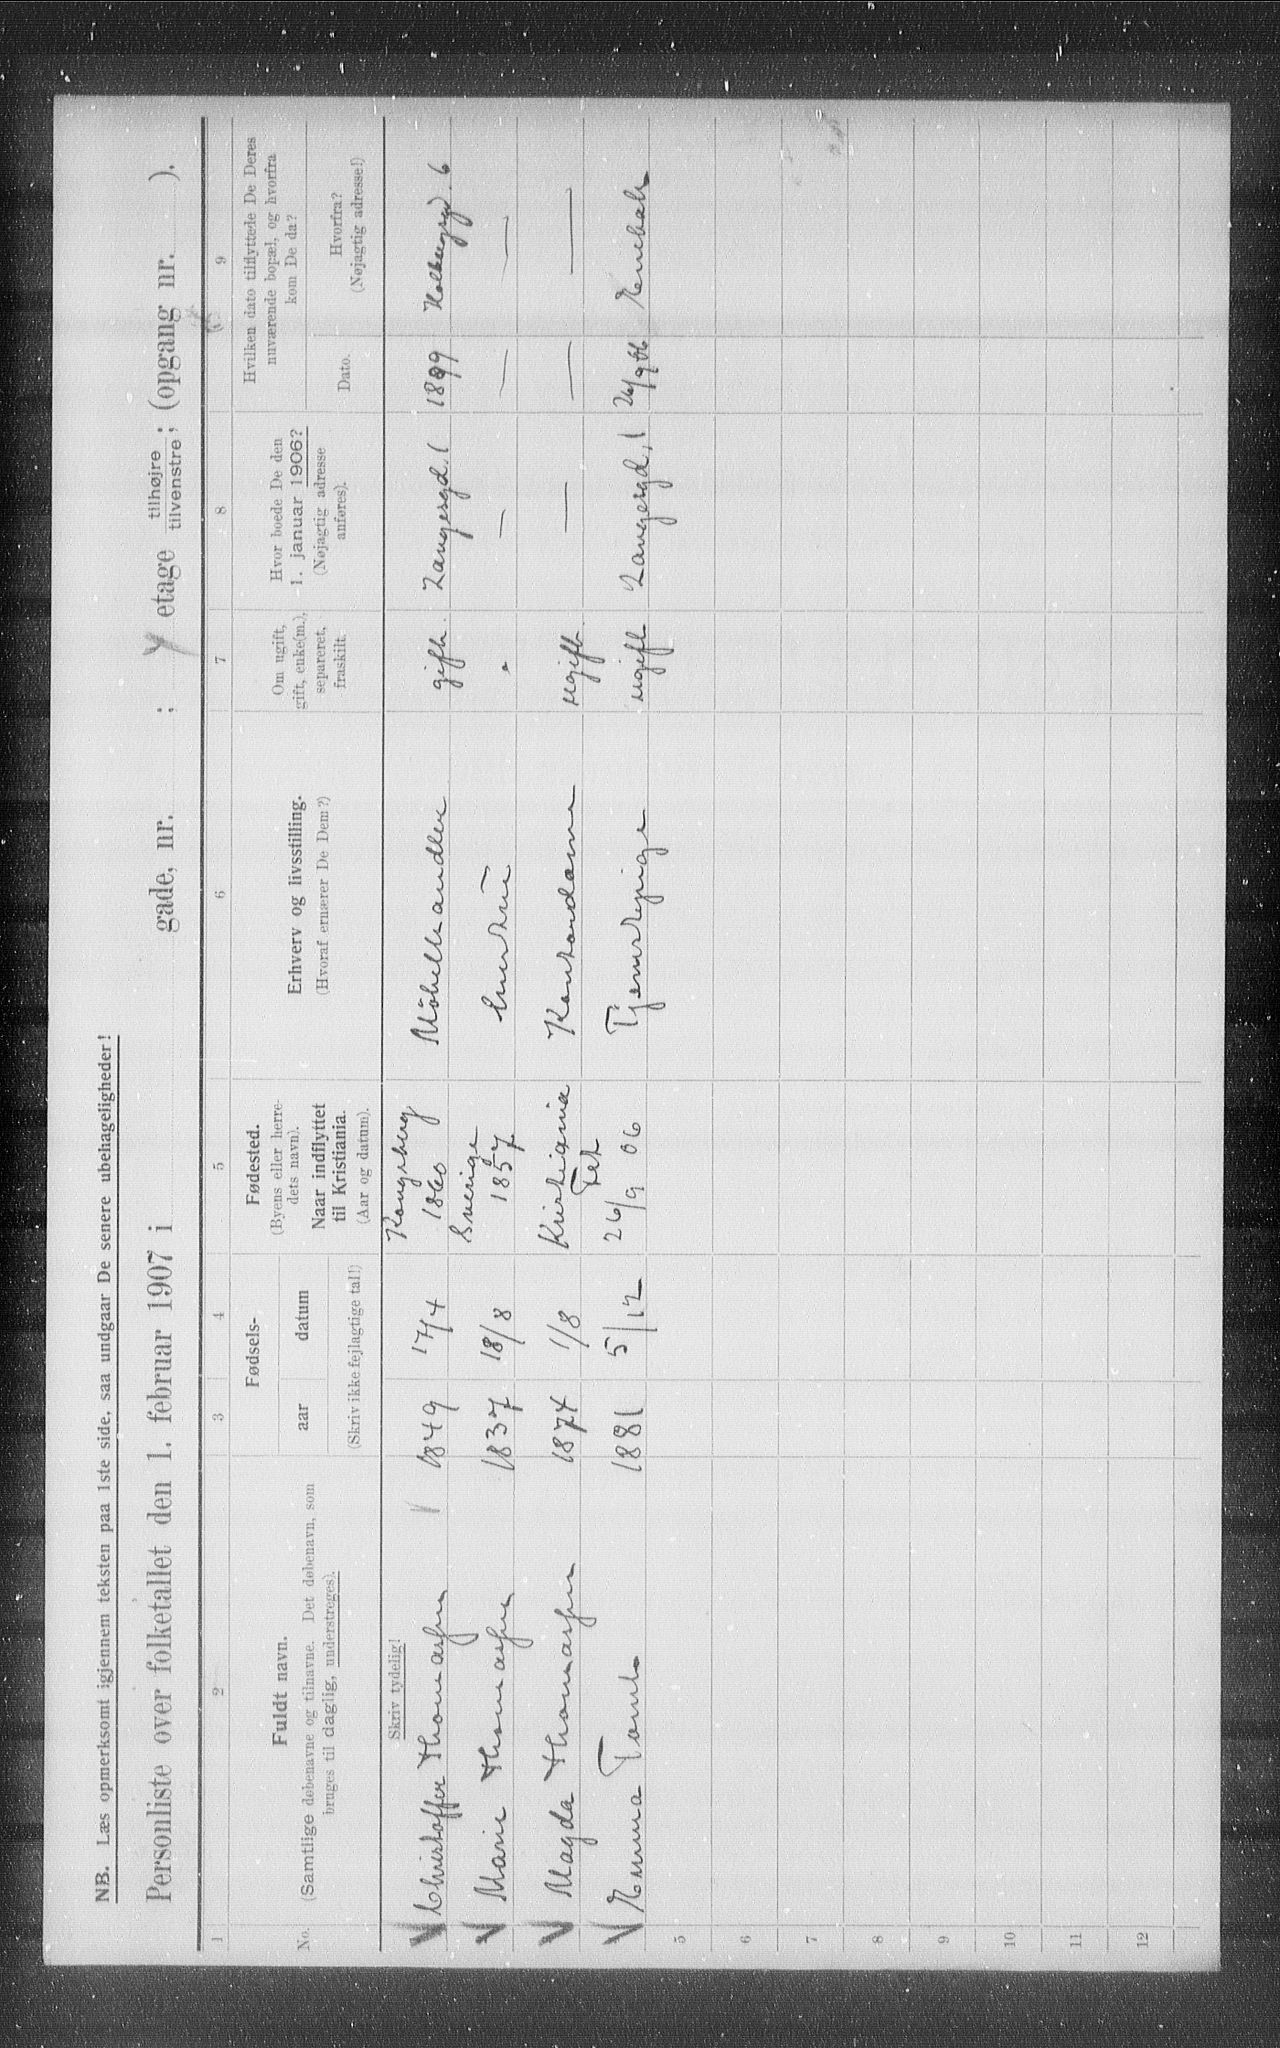 NB. Læs opmerksomt igjennem teksten paa 1ste side, saa undgaar De senere ubehageligheder!
Personliste over folketallet den 1. februar 1907 i gade, nr. ; etage tilhøjre / tilvenstre ; (opgang nr. ).
1 2 3 4 5 6 7 8 9
No.
Fuldt navn.
(Samtlige døbenavne og tilnavne. Det døbenavn, som
bruges til daglig, understreges).
Fødsels-
aar datum
(Skriv ikke fejlagtige tal!)
Fødested.
(Byens eller herre-
dets navn).
Naar indflyttet
til Kristiania.
(Aar og datum).
Erhverv og livsstilling.
(Hvoraf ernærer De Dem?)
Om ugift,
gift, enke(m.),
separeret,
fraskilt.
Hvor boede De den
1. januar 1906?
(Nøjagtig adresse
anføres).
Hvilken dato tilflyttede De Deres
nuværende bopæl, og hvorfra
kom De da?
Dato.
Hvorfra?
(Nøjagtig adresse!)
Skriv tydelig!
Christoffer Thomassen 1849 17/4 Kongsberg 1860 Möbelhandler gift. Langesgd. 1 1899 Holbergsgd. 6
Marie Thomassen 1837 18/8 Sverige 1857 Hustru " — — —
Magda Thomassen 1874 1/8 Kristiania Kontordame ugift — — —
Emma Tomt 1881 5/12 Fet 26/9 06 Tjenestepige ugift Langesgd. 1 26/9 06 Enebak
5
6
7
8
9
10
11
12